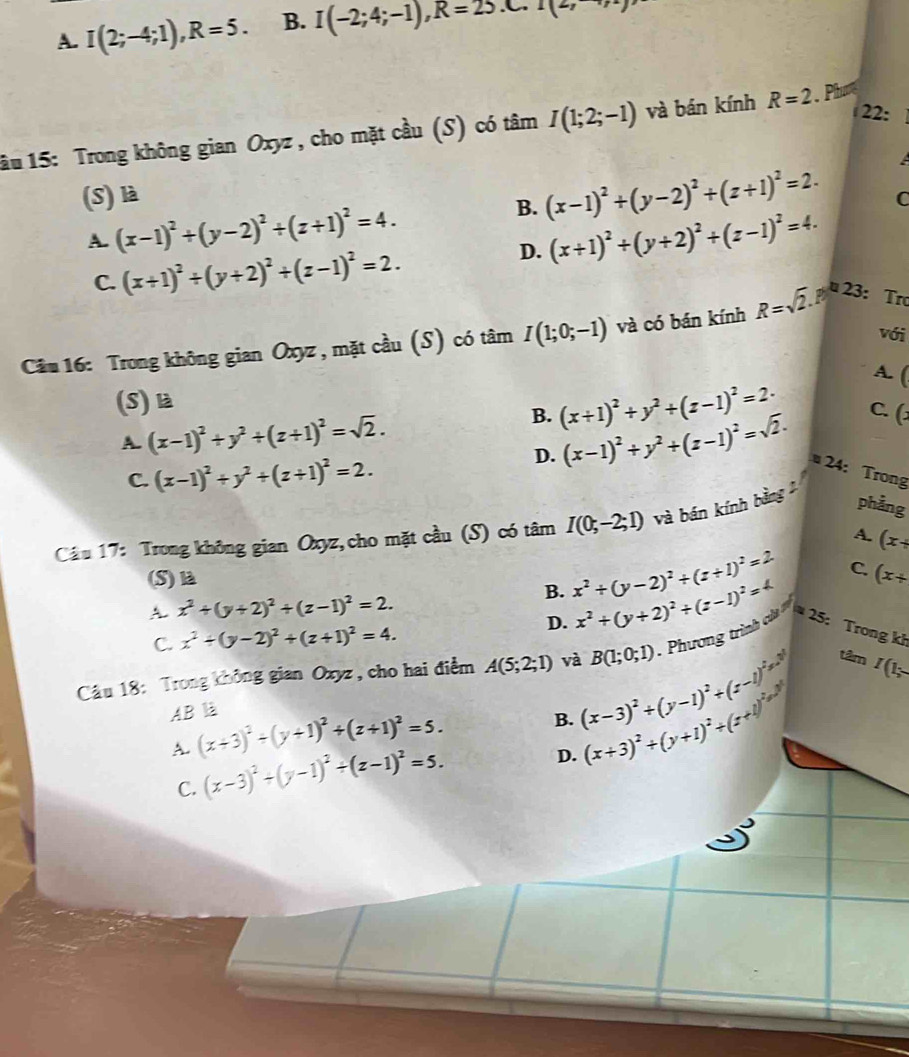 A. I(2;-4;1), R=5. B. I(-2;4;-1), R=25. C.
15: Trong không gian Oxyz, cho mặt cầu (S) có tâm I(1;2;-1) và bán kính R=2.
22:
(S) là
A. (x-1)²+(y-2)²+(z+1)²=4. B. (x-1)²+(y-2)²+(z+1)²=2.
C
C. (x+1)²+(y+2)²+(z-1)²=2. D. (x+1)²+(y+2)²+(z-1)²=4.
23: Tro
với
Câu 16: Trong không gian Oxyz, mặt cầu (S) có tâm I(1;0;-1) và có bán kính R=√2.
A. (
(S) là
C. (
A. (x-1)²+y²+(z+1)²=√2. B. (x+1)²+y²+(z-1)²=2.
C. (x-1)²+y²+(z+1)²=2. D. (x-1)²+y²+(z-1)²=√2.
24: Trong
phẳng
Câu 17: Trong không gian Oxyz, cho mặt cầu (S) có tâm I(0;-2;1) và bán kính bằng 2.
A. (x+
(S) là
C. (x+
A. x²+(y+2)²+(z-1)²=2. B. x²+(y-2)²+(z+1)²=2
C. x²+(y-2)²+(z+1)²=4. D. x²+(y+2)²+(z-1)²=4
25: Trong kh
tâm I(1;-
Câu 18: Trong không gian Oxyz, cho hai điểm A(5;2;1) và B(1;0;1). Phương trình của
AB là
A. (x+3)²+(y+1)²+(z+1)²=5. B. (x-3)²+(y-1)²+(z-1)²=20
C. (x-3)²+(y-1)²+(z-1)²=5. D. (x+3)²+(y+1)²+(z+1)²=20